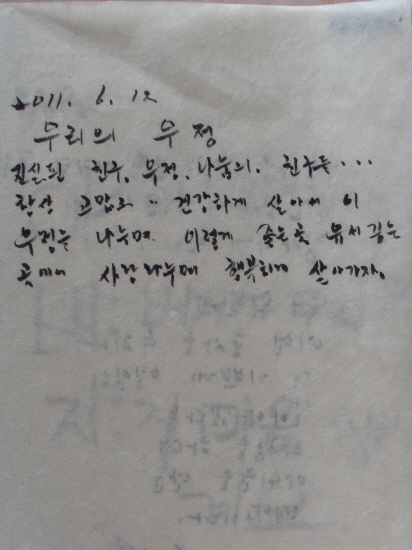 2011. 6. 12
우리의 우정
진실된 친구, 우정, 나눔의, 친구들...
항상 고맙고 .. 건강하게 살아서 이
우정을 나누며 이렇게 좋은곳 유서깊은
곳에서 사랑나누며 행복하게 살아가자.